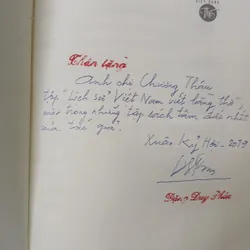 VIỆT NAM
Thân tặng
Anh chị Chương Thâu
tập "Lịch sử Việt Nam viết bằng thơ"
một trong những tập sách tâm đắc nhất
của "tác giả".
Xuân Kỷ Hợi - 2019
Đặng Duy